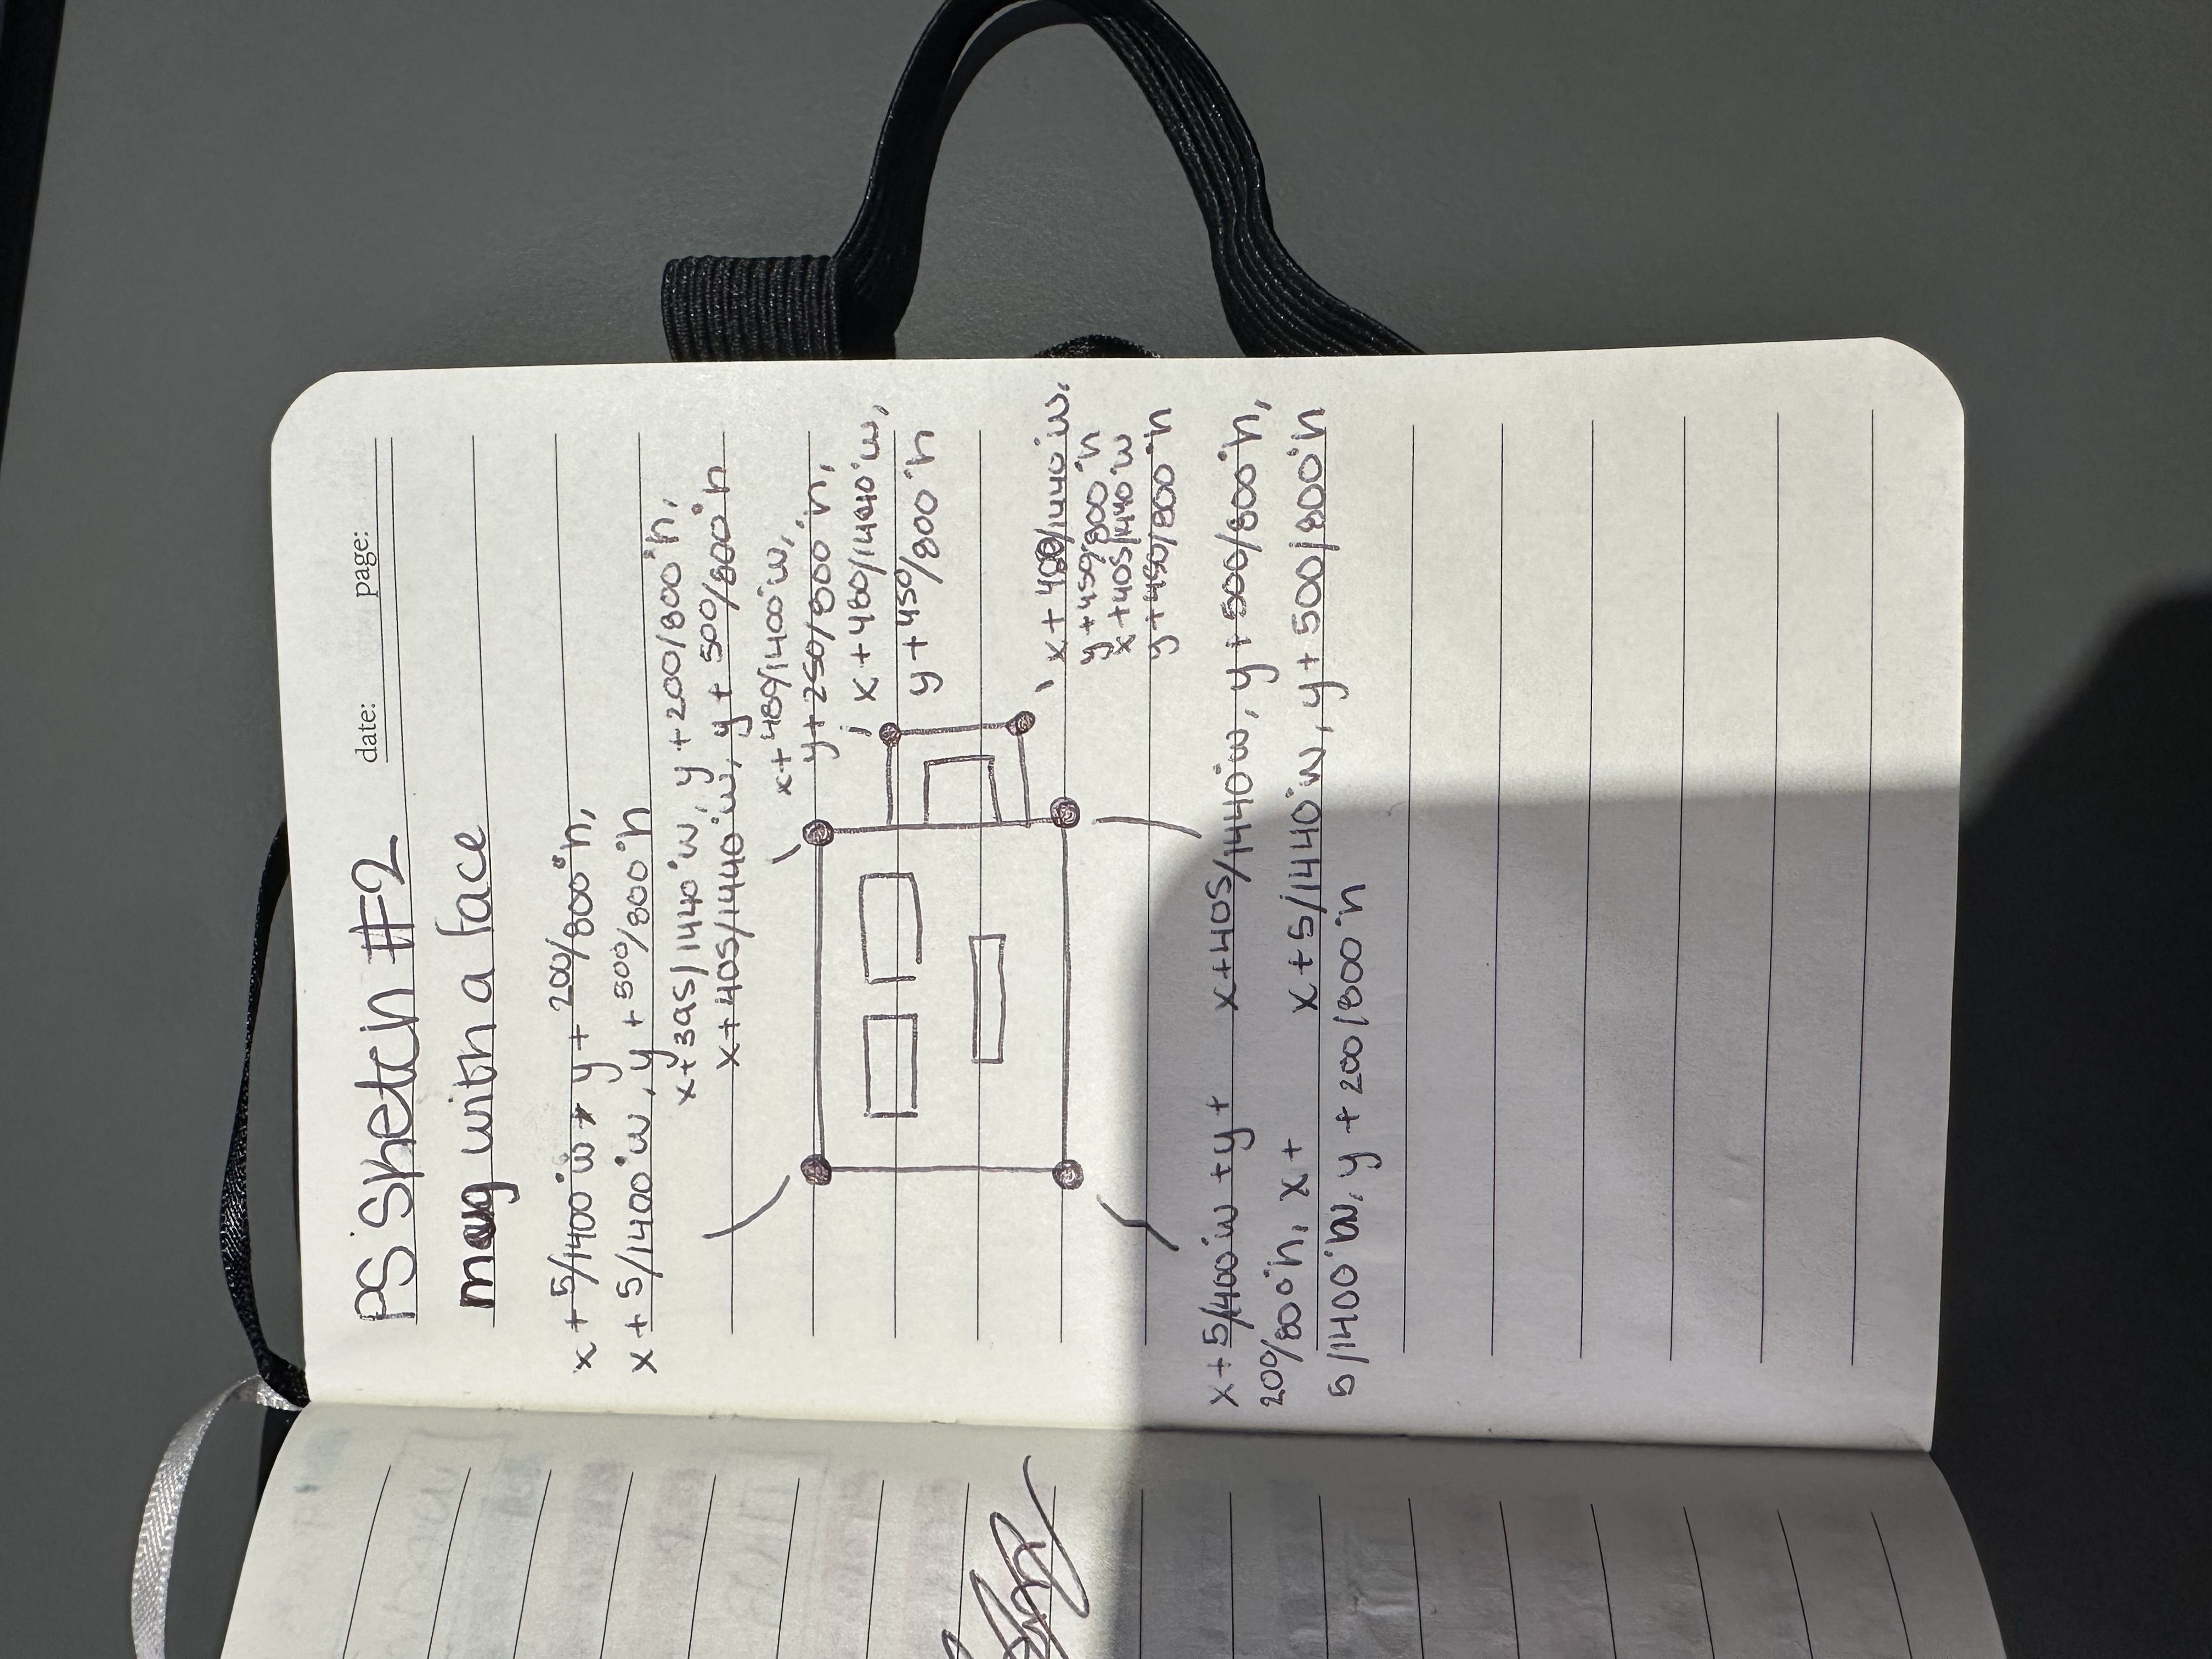 PS Sketch #2
date: page:
mug with a face
x + 5/1400*w + y + 200/800*h,
x + 5/1400*w, y + 500/800*h
x+395/1440*w, y+200/800*h,
x+405/1440*w, y + 500/800*h
x+480/1400*w,
y+250/800*h,
x + 480/1440*w,
y + 450/800*h
x + 480/1440*w.
y +450/800*h
x +405/1440*w
y +450/800*h
x + 5/1400*w + y +
200/800*h, x +
5/1400*w, y + 200/800*h
x+405/1440*w, y + 500/800*h,
x + 5/1440*w, y + 500/800*h